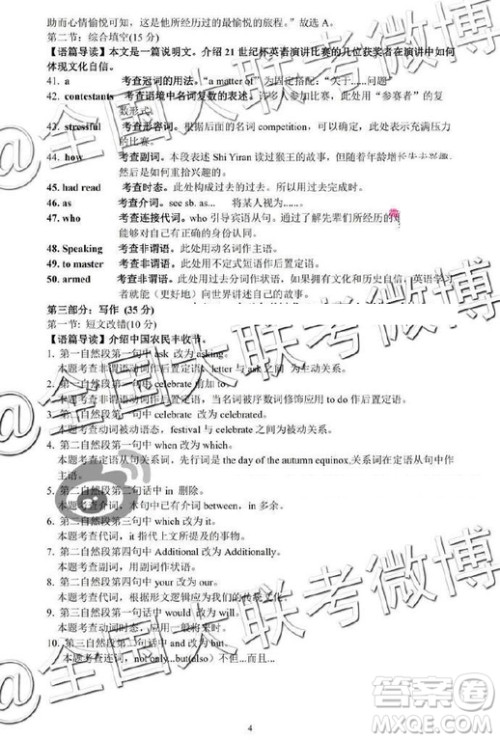 助而心情愉悦可知，这是他所经历过的最愉悦的旅程。”故选 A。
第二节：综合填空(15 分)
【语篇导读】本文是一篇说明文。介绍 21 世纪杯英语演讲比赛的几位获奖者在演讲中如何
体现文化自信。
41. a 考查冠词的用法。“a matter of”为固定搭配：“关于……问题”
42. contestants 考查语境中名词复数的表述。许多人参加比赛，此处用“参赛者”的复
数形式。
43. stressful 考查形容词。根据后面的名词 competition，可以得出，此处表示充满压力
的比赛。
44. how 考查副词。本段表述 Shi Yiran 读过猴王的故事，但随着年龄增长失去
兴趣，后来是如何重拾兴趣的。
45. had read 考查时态。此处构成过去的过去。所以用过去完成时。
46. as 考查介词。see sb. as... 将某人视为……
47. who 考查连接代词。who 引导宾语从句。通过了解先辈们所经历的
能够对自己有正确的身份认同。
48. Speaking 考查非谓语。此处用动名词作主语。
49. to master 考查非谓语。此处用不定式短语作后置定语。
50. armed 考查非谓语。此处用过去分词作状语。拥有文化和历史自信，英语学习
者们就能（更好地）向世界讲述自己的故事。
第三部分：写作 (35 分)
第一节: 短文改错(10 分)
【语篇导读】介绍中国农民丰收节。
1. 第一自然段第一句中 ask 改为 asking。
本题考查非谓语动词作后置定语，letter 与 ask 之间 为主动关系。
2. 第一自然段第二句中 celebrate 前加 to。
本题考查非谓语动词作后置定语，当名词被序数词修饰应用 to do 作后置定语。
3. 第二自然段第一句中 celebrate 改为 celebrated。
本题考查动词被动语态，festival 与 celebrate 之间为被动关系。
4. 第二自然段第一句中 when 改为 which。
本题考查定语从句关系词，先行词是 the day of the autumn equinox,关系词在定语从句中作
主语。
5. 第二自然段第二句话中 in 删除。
本题考查介词，本句中已有介词 between，in 多余。
6. 第二自然段第二句话中 which 改为 it。
本题考查代词，it 指代上文所提及的事物。
7. 第二自然段第四句中 Additional 改为 Additionally。
本题考查副词，用副词作状语。
8. 第二自然段第四句中
本题考查代词，根据形义逻辑应为我们的传统文化。
9. 第三自然段第一句中 would 改为 will。
本题考查动词时态，应用一般将来时。
10. 第三自然段第二句话中 and 改为 but。
本题考查连词，not only...but(also) 不但…而且…
4
@全国大联考微博
@全国大联考微博
@全国大联考微博
答案圈
MXQE.COM